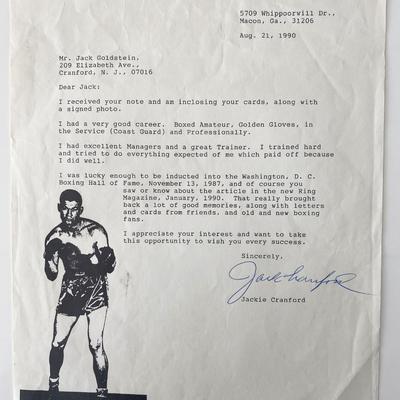 5709 Whippoorwill Dr.,
Macon, Ga., 31206
Aug. 21, 1990
Mr. Jack Goldstein,
209 Elizabeth Ave.,
Cranford, N. J., 07016
Dear Jack:
I received your note and am inclosing your cards, along with
a signed photo.
I had a very good career. Boxed Amateur, Golden Gloves, in
the Service (Coast Guard) and Professionally.
I had excellent Managers and a great Trainer. I trained hard
and tried to do everything expected of me which paid off because
I did well.
I was lucky enough to be inducted into the Washington, D. C.
Boxing Hall of Fame, November 13, 1987, and of course you
saw or know about the article in the new Ring
Magazine, January, 1990. That really brought
back a lot of good memories, along with letters
and cards from friends, and old and new boxing
fans.
I appreciate your interest and want to take
this opportunity to wish you every success.
Sincerely,
Jack Cranford
Jackie Cranford